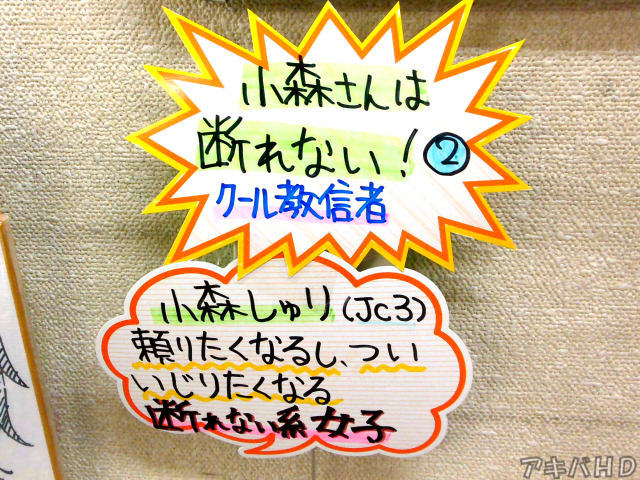 小森さんは
断れない！②
クール教信者
小森しゅり(JC3)
頼りたくなるし、つい
いじりたくなる
断れない系女子
アキバHD